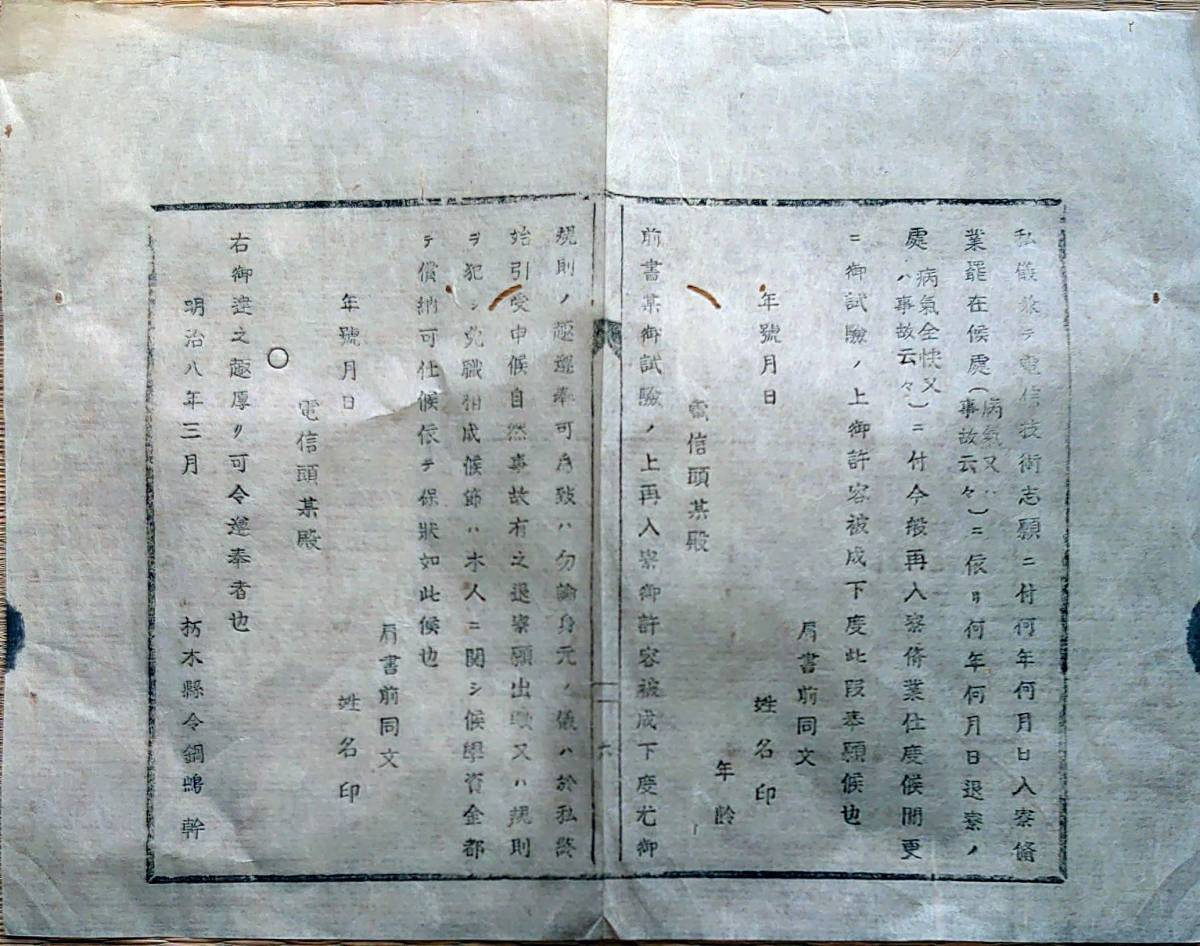 私儀兼テ電信技術志願ニ付何年何月日入寮脩
業罷在候處(病氣又ハ事故云々)ニ依リ何年何月日退寮ノ
處(病氣全快又ハ事故云々)ニ付今般再入寮脩業仕度候間更
ニ御試驗ノ上御許容被成下度此段奉願候也
肩書前同文
年號月日 姓名印
年齡
電信頭某殿
前書某御試驗ノ上再入寮御許容被成下度尤御
六
規則ノ趣遵奉可為致ハ勿論身元ノ儀ハ於私終
始引受申候自然事故有之退寮願出候又ハ規則
ヲ犯シ免職相成候節ハ本人ニ関シ候學資金都
テ償納可仕候依テ保狀如此候也
肩書前同文
年號月日 姓名印
電信頭某殿
○
右御達之趣厚ク可令遵奉者也
明治八年三月 栃木縣令鍋嶋幹